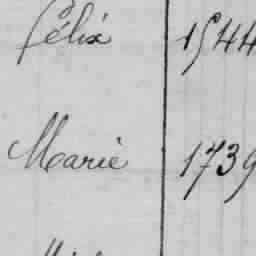 Félix 1544
Marie 1739